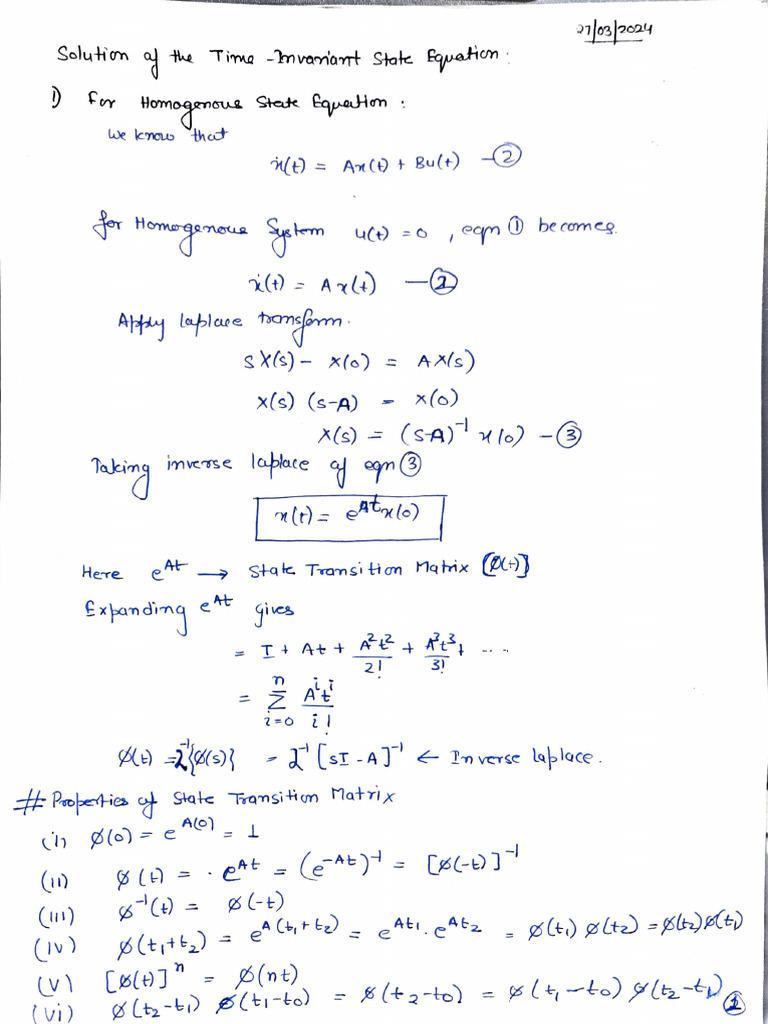 27/03/2024
Solution of the Time-Invariant State Equation:
1) For Homogenous State Equation:
We know that
ẋ(t) = Ax(t) + Bu(t) — ②
for Homogenous System u(t) = 0, eqn ① becomes.
ẋ(t) = Ax(t) — ②
Apply laplace transform.
sX(s) - x(0) = AX(s)
X(s) (s-A) = x(0)
X(s) = (s-A)⁻¹ x(0) — ③
Taking inverse laplace of eqn ③
x(t) = e^{At} x(0)
Here e^{At} → State Transition Matrix [Ø(t)]
Expanding e^{At} gives
= I + At + A²t²/2! + A³t³/3! + ....
= Σ_{i=0}^{n} A^i t^i / i!
Ø(t) = L⁻¹{Ø(s)} = L⁻¹ [sI - A]⁻¹ ← Inverse laplace.
# Properties of State Transition Matrix
(i) Ø(0) = e^{A(0)} = 1
(ii) Ø(t) = e^{At} = (e^{-At})⁻¹ = [Ø(-t)]⁻¹
(iii) Ø⁻¹(t) = Ø(-t)
(iv) Ø(t₁+t₂) = e^{A(t₁+t₂)} = e^{At₁}.e^{At₂} = Ø(t₁) Ø(t₂) = Ø(t₂) Ø(t₁)
(v) [Ø(t)]ⁿ = Ø(nt)
(vi) Ø(t₂-t₁) Ø(t₁-t₀) = Ø(t₂-t₀) = Ø(t₁-t₀) Ø(t₂-t₁)